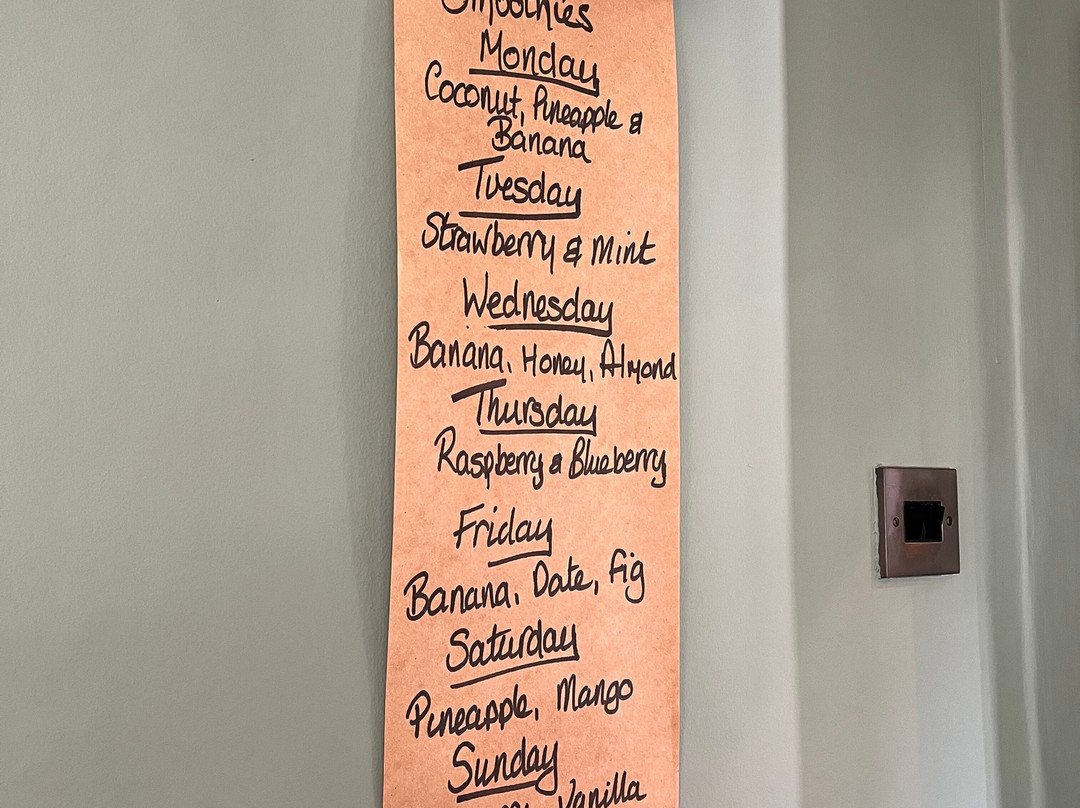 Smoothies
Monday
Coconut, Pineapple &
Banana
Tuesday
Strawberry & Mint
Wednesday
Banana, Honey, Almond
Thursday
Raspberry & Blueberry
Friday
Banana, Date, Fig
Saturday
Pineapple, Mango
Sunday
Vanilla